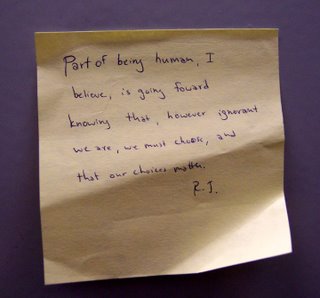 Part of being human, I
believe, is going foward
knowing that, however ignorant
we are, we must choose, and
that our choices matter.
R.J.